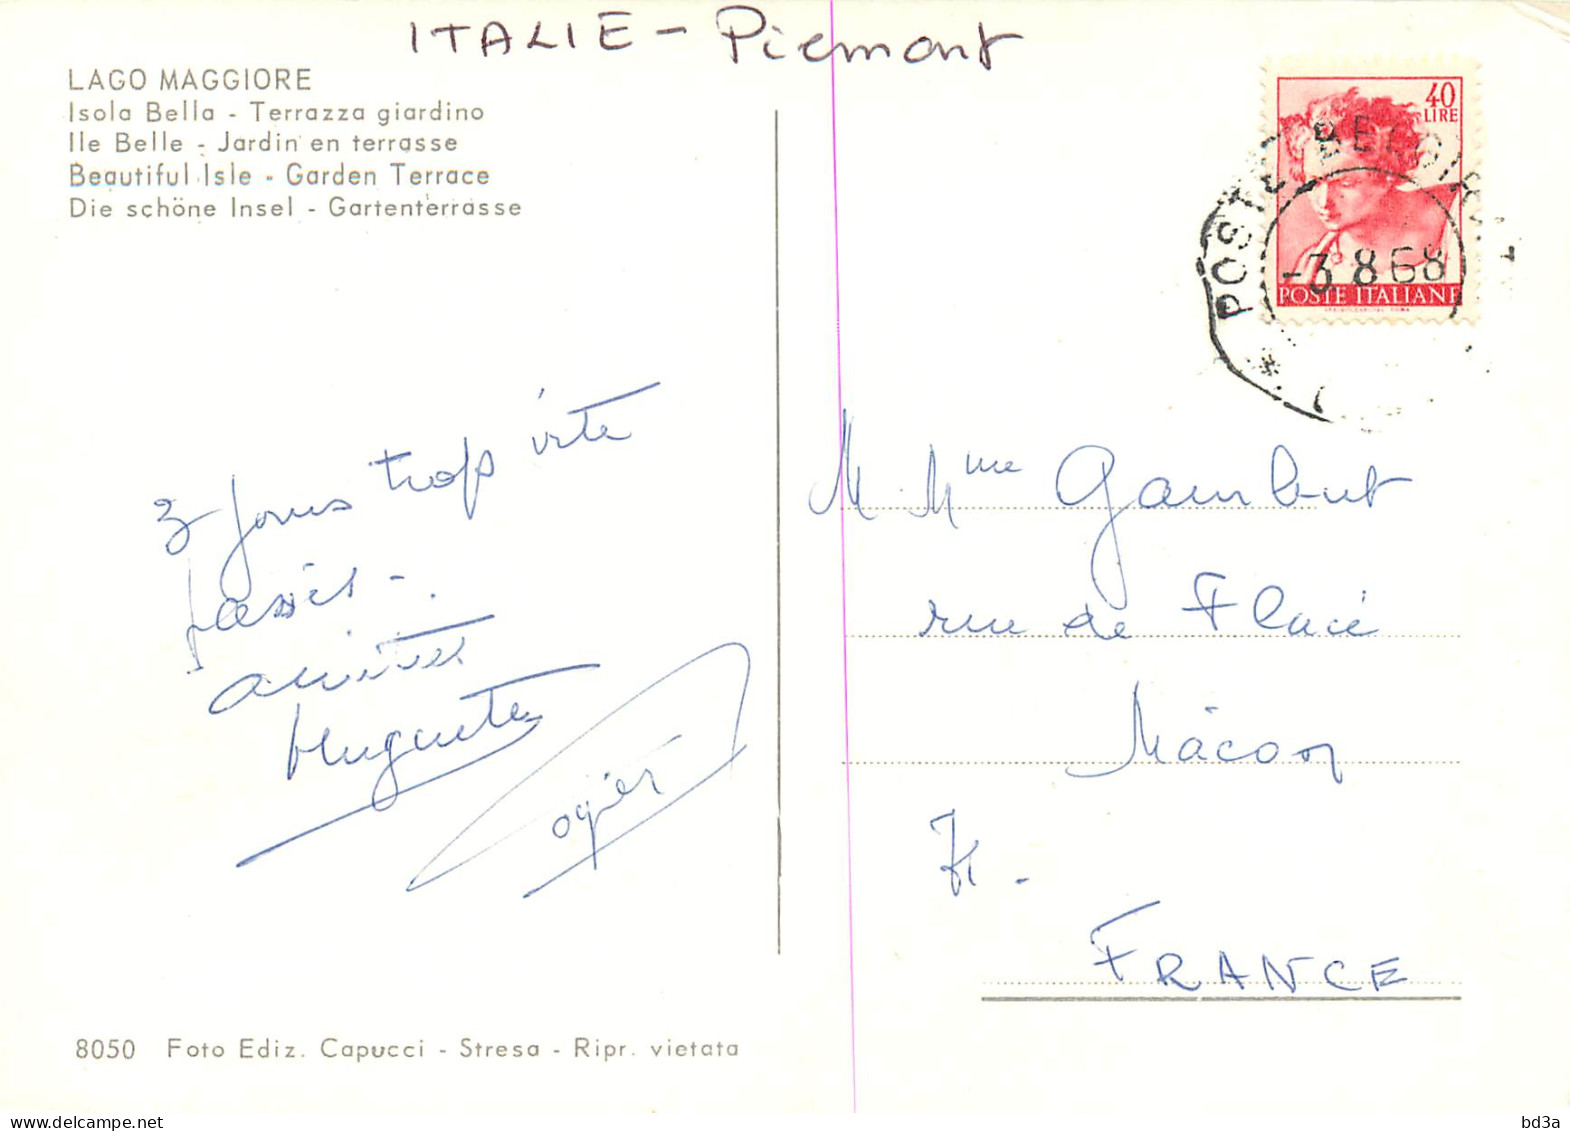 ITALIE - Piemont
LAGO MAGGIORE
Isola Bella - Terrazza giardino
Ile Belle - Jardin en terrasse
Beautiful Isle - Garden Terrace
Die schöne Insel - Gartenterrasse
40
LIRE
POSTE BELGIRATE
-3.8.68
POSTE ITALIANE
3 jours trop vite
passés -
amitiés
Huguette
ogier
M. Mme Gambut
rue de Flacé
Mâcon
71 -
FRANCE
8050 Foto Ediz. Capucci - Stresa - Ripr. vietata
www.delcampe.net
bd3a